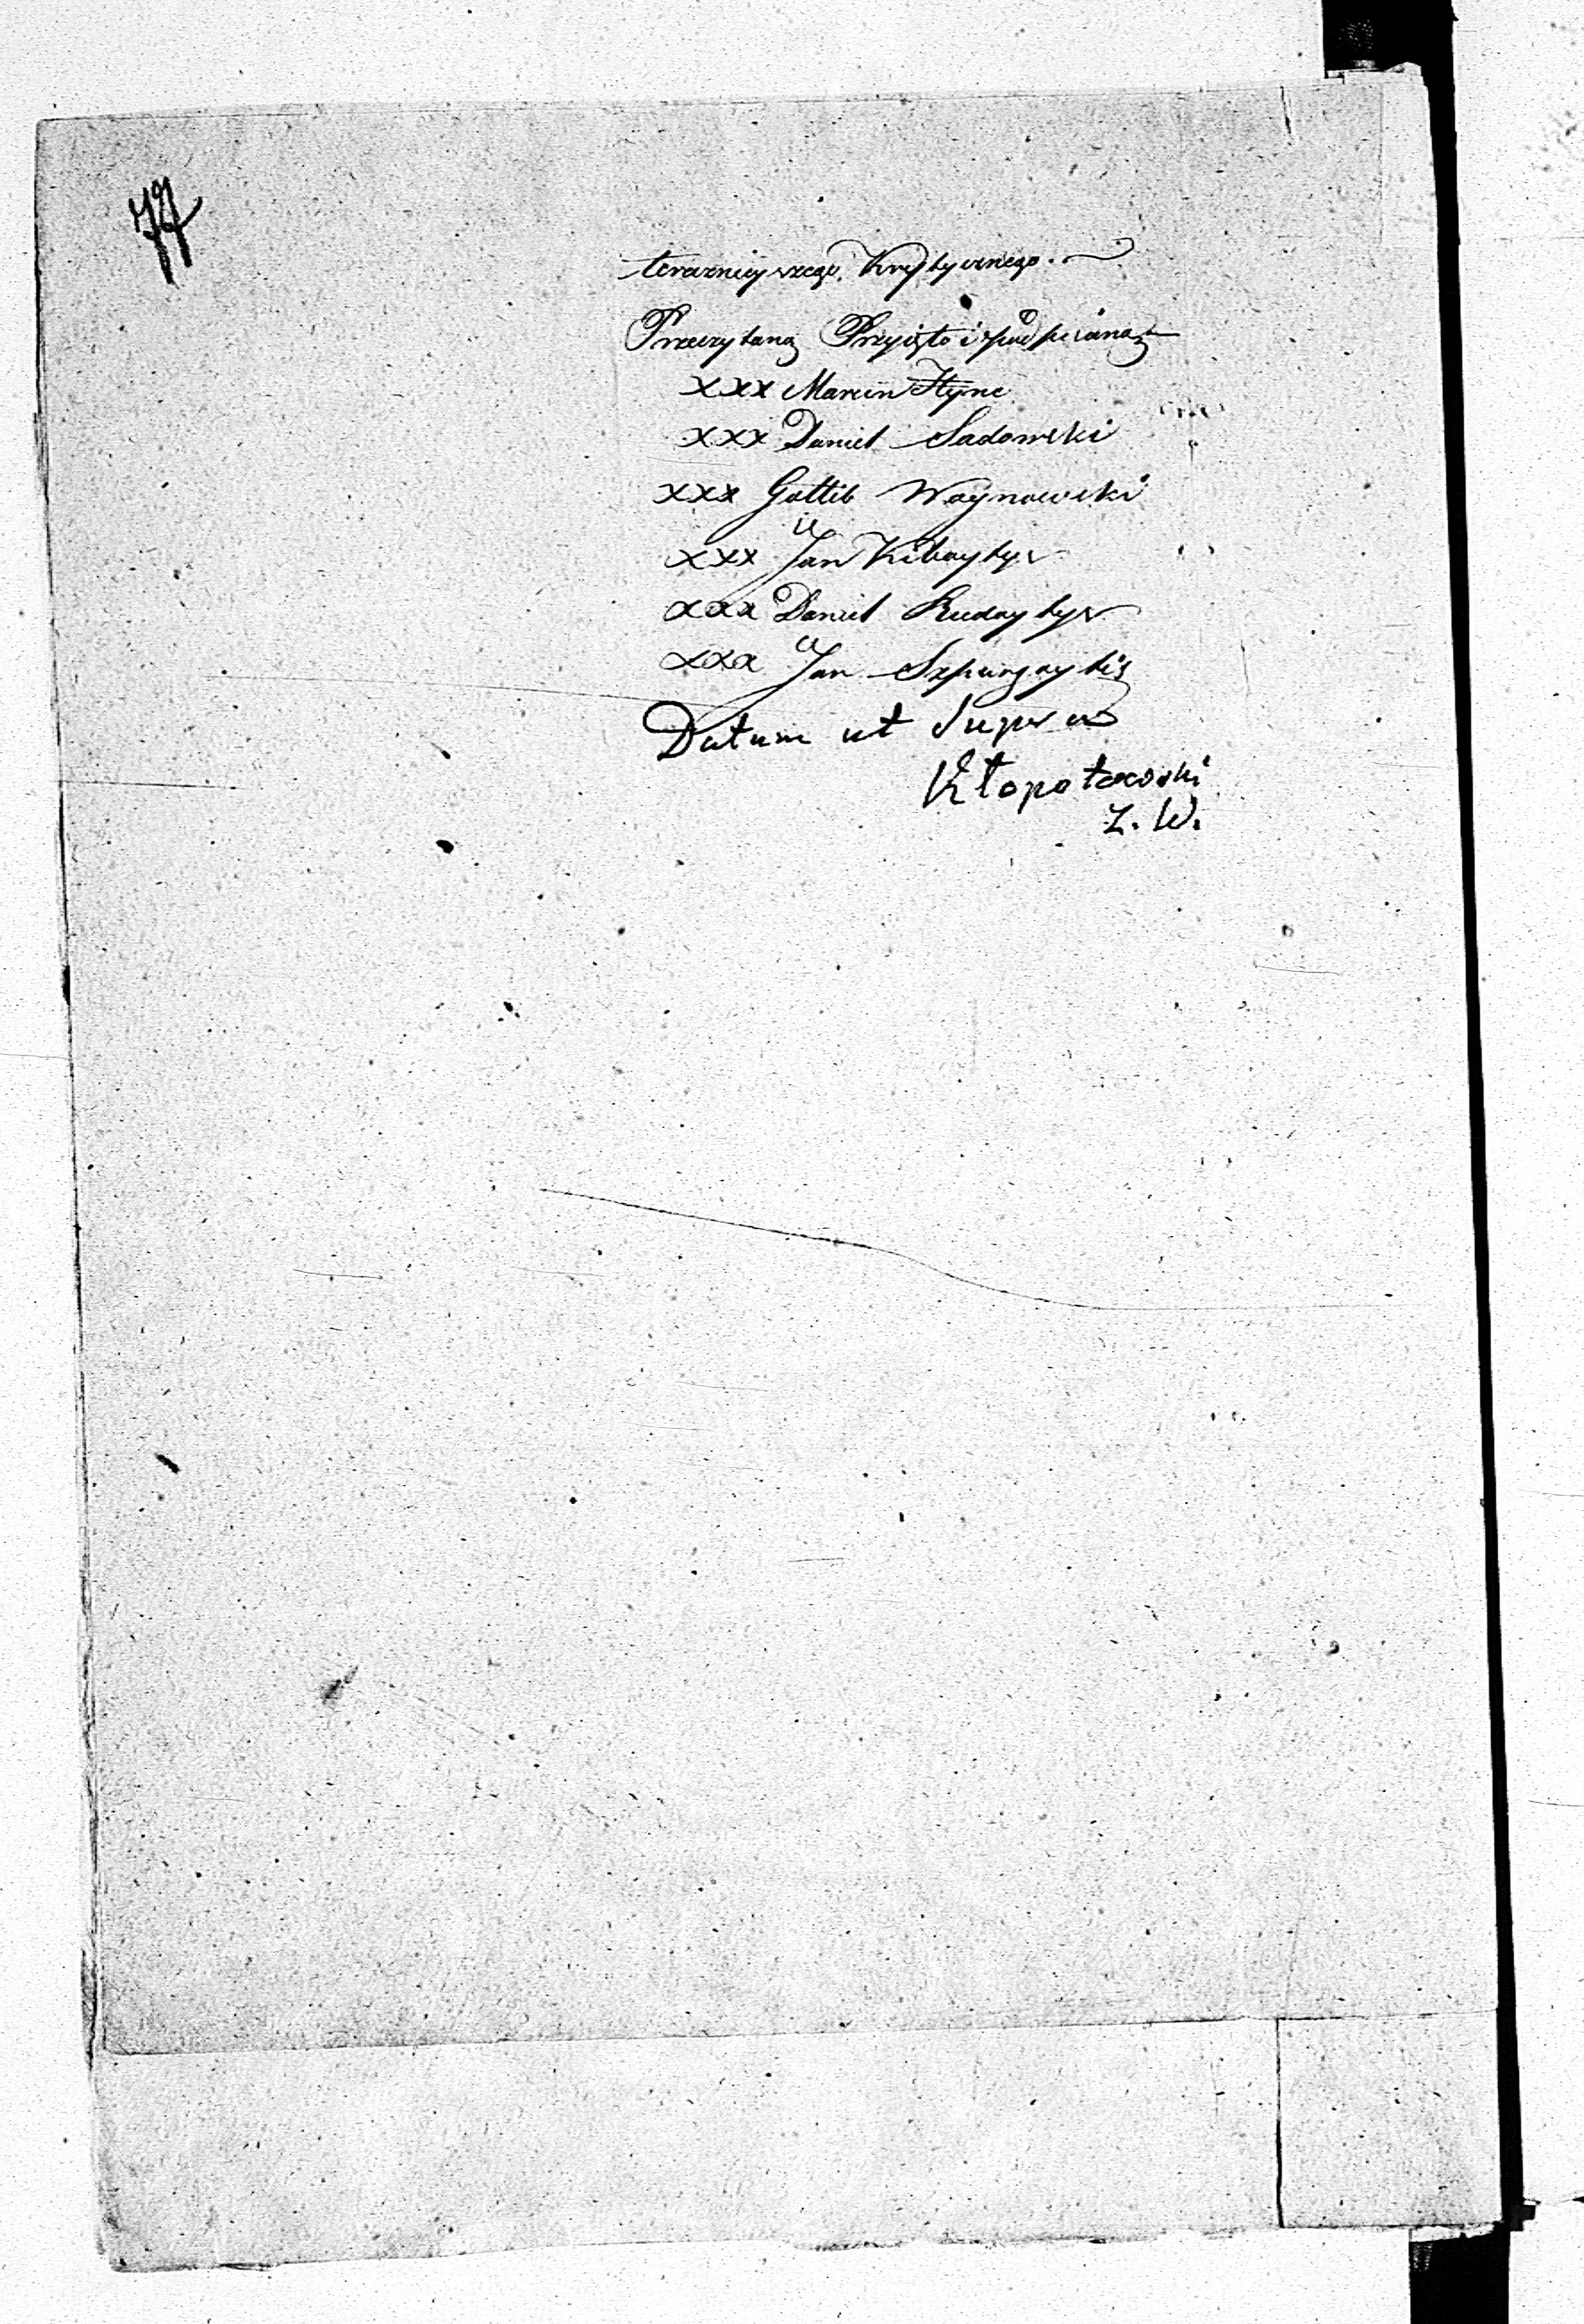 77
teraznieyszego Krytycznego.
Przeczytano Przyięto i podpisano
xxx Marcin Hync
xxx Daniel Sadowski
xxx Gottlib Woynowski
xxx Jan Kibaytys
xxx Daniel Rudaytys
xxx Jan Szpurgaytis
Datum ut Supra
Kłopotowski
Z. W.